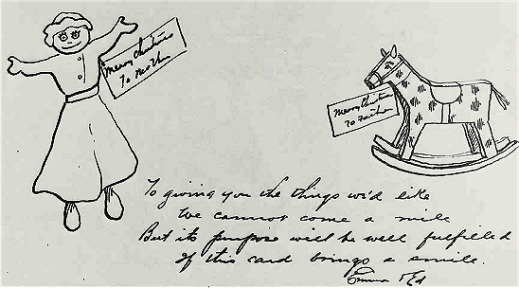 Merry Christmas
To Mother
Merry Christmas
To Father
To giving you the things we'd like
We cannot come a mile
But its purpose will be well fulfilled
If this card brings a smile.
Emma & Ed